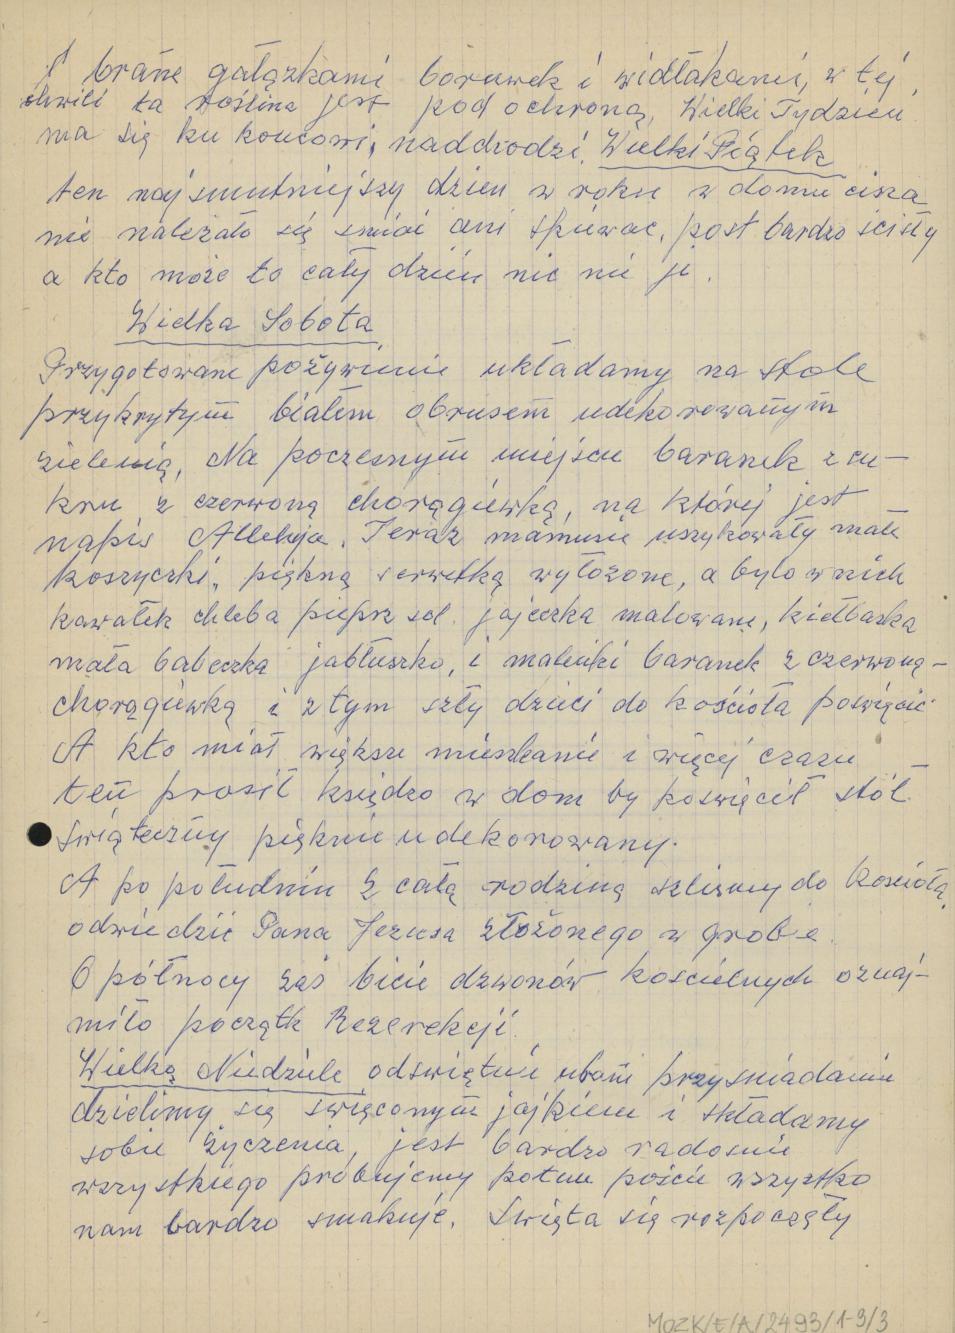 brane gałązkami boruwek i widłakami, w tej
chwili ta roślina jest pod ochroną, Wielki Tydzień
ma się ku koncowi, naddrodzi, Wielki Piątek
ten najsmutniejszy dzien w roku w domu cisza
nie należało się smiać ani spiewac, post bardzo ścisły
a kto może to cały dzień nic nie je.
Wielka Sobota
Przygotowane pożywienie układamy na stole
przykrytym białem obrusem udekorowanym
zielenią, Na poczesnym miejscu baranek z cu-
kru z czerwoną chorągiewką, na której jest
napis Alleluja. Teraz mamusie uszykowały małe
koszyczki, piękną serwetką wyłożone, a bylo w nich
kawałek chleba pieprz sol jajeczka malowane, kiełbaska
mała babeczka jabłuszko, i maleńki baranek z czerwoną-
chorągiewką i z tym szły dzieci do kościoła poswięcić
A kto miał większe mieszkanie i więcej czasu
ten prosił księdza w dom by poswięcił stół
swiąteczny pięknie udekorowany.
A po południu z całą rodziną szliśmy do kościoła
odwiedzić Pana Jezusa złożonego w grobie.
O północy zas bicie dzwonów koscielnych oznaj-
miło początk Rezerekcji
Wielką Niedziele odswiętnie ubani przy sniadaniu
dzielimy się swięconym jajkiem i składamy
sobie życzenia, jest bardzo radosnie
wszystkiego próbujemy potem poście wszystko
nam bardzo smakuje. Swięta się rozpoczęły
MOZK/E/A/2493/1-3/3